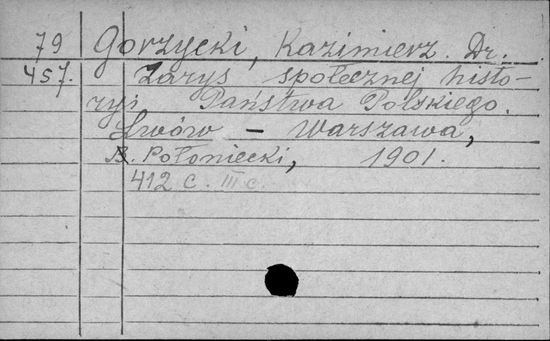 79 Gorzycki, Kazimierz. Dr.
457. Zarys społecznej histo-
ryi Państwa Polskiego.
Lwów – Warszawa,
B. Połoniecki, 1901.
412 c. III c.